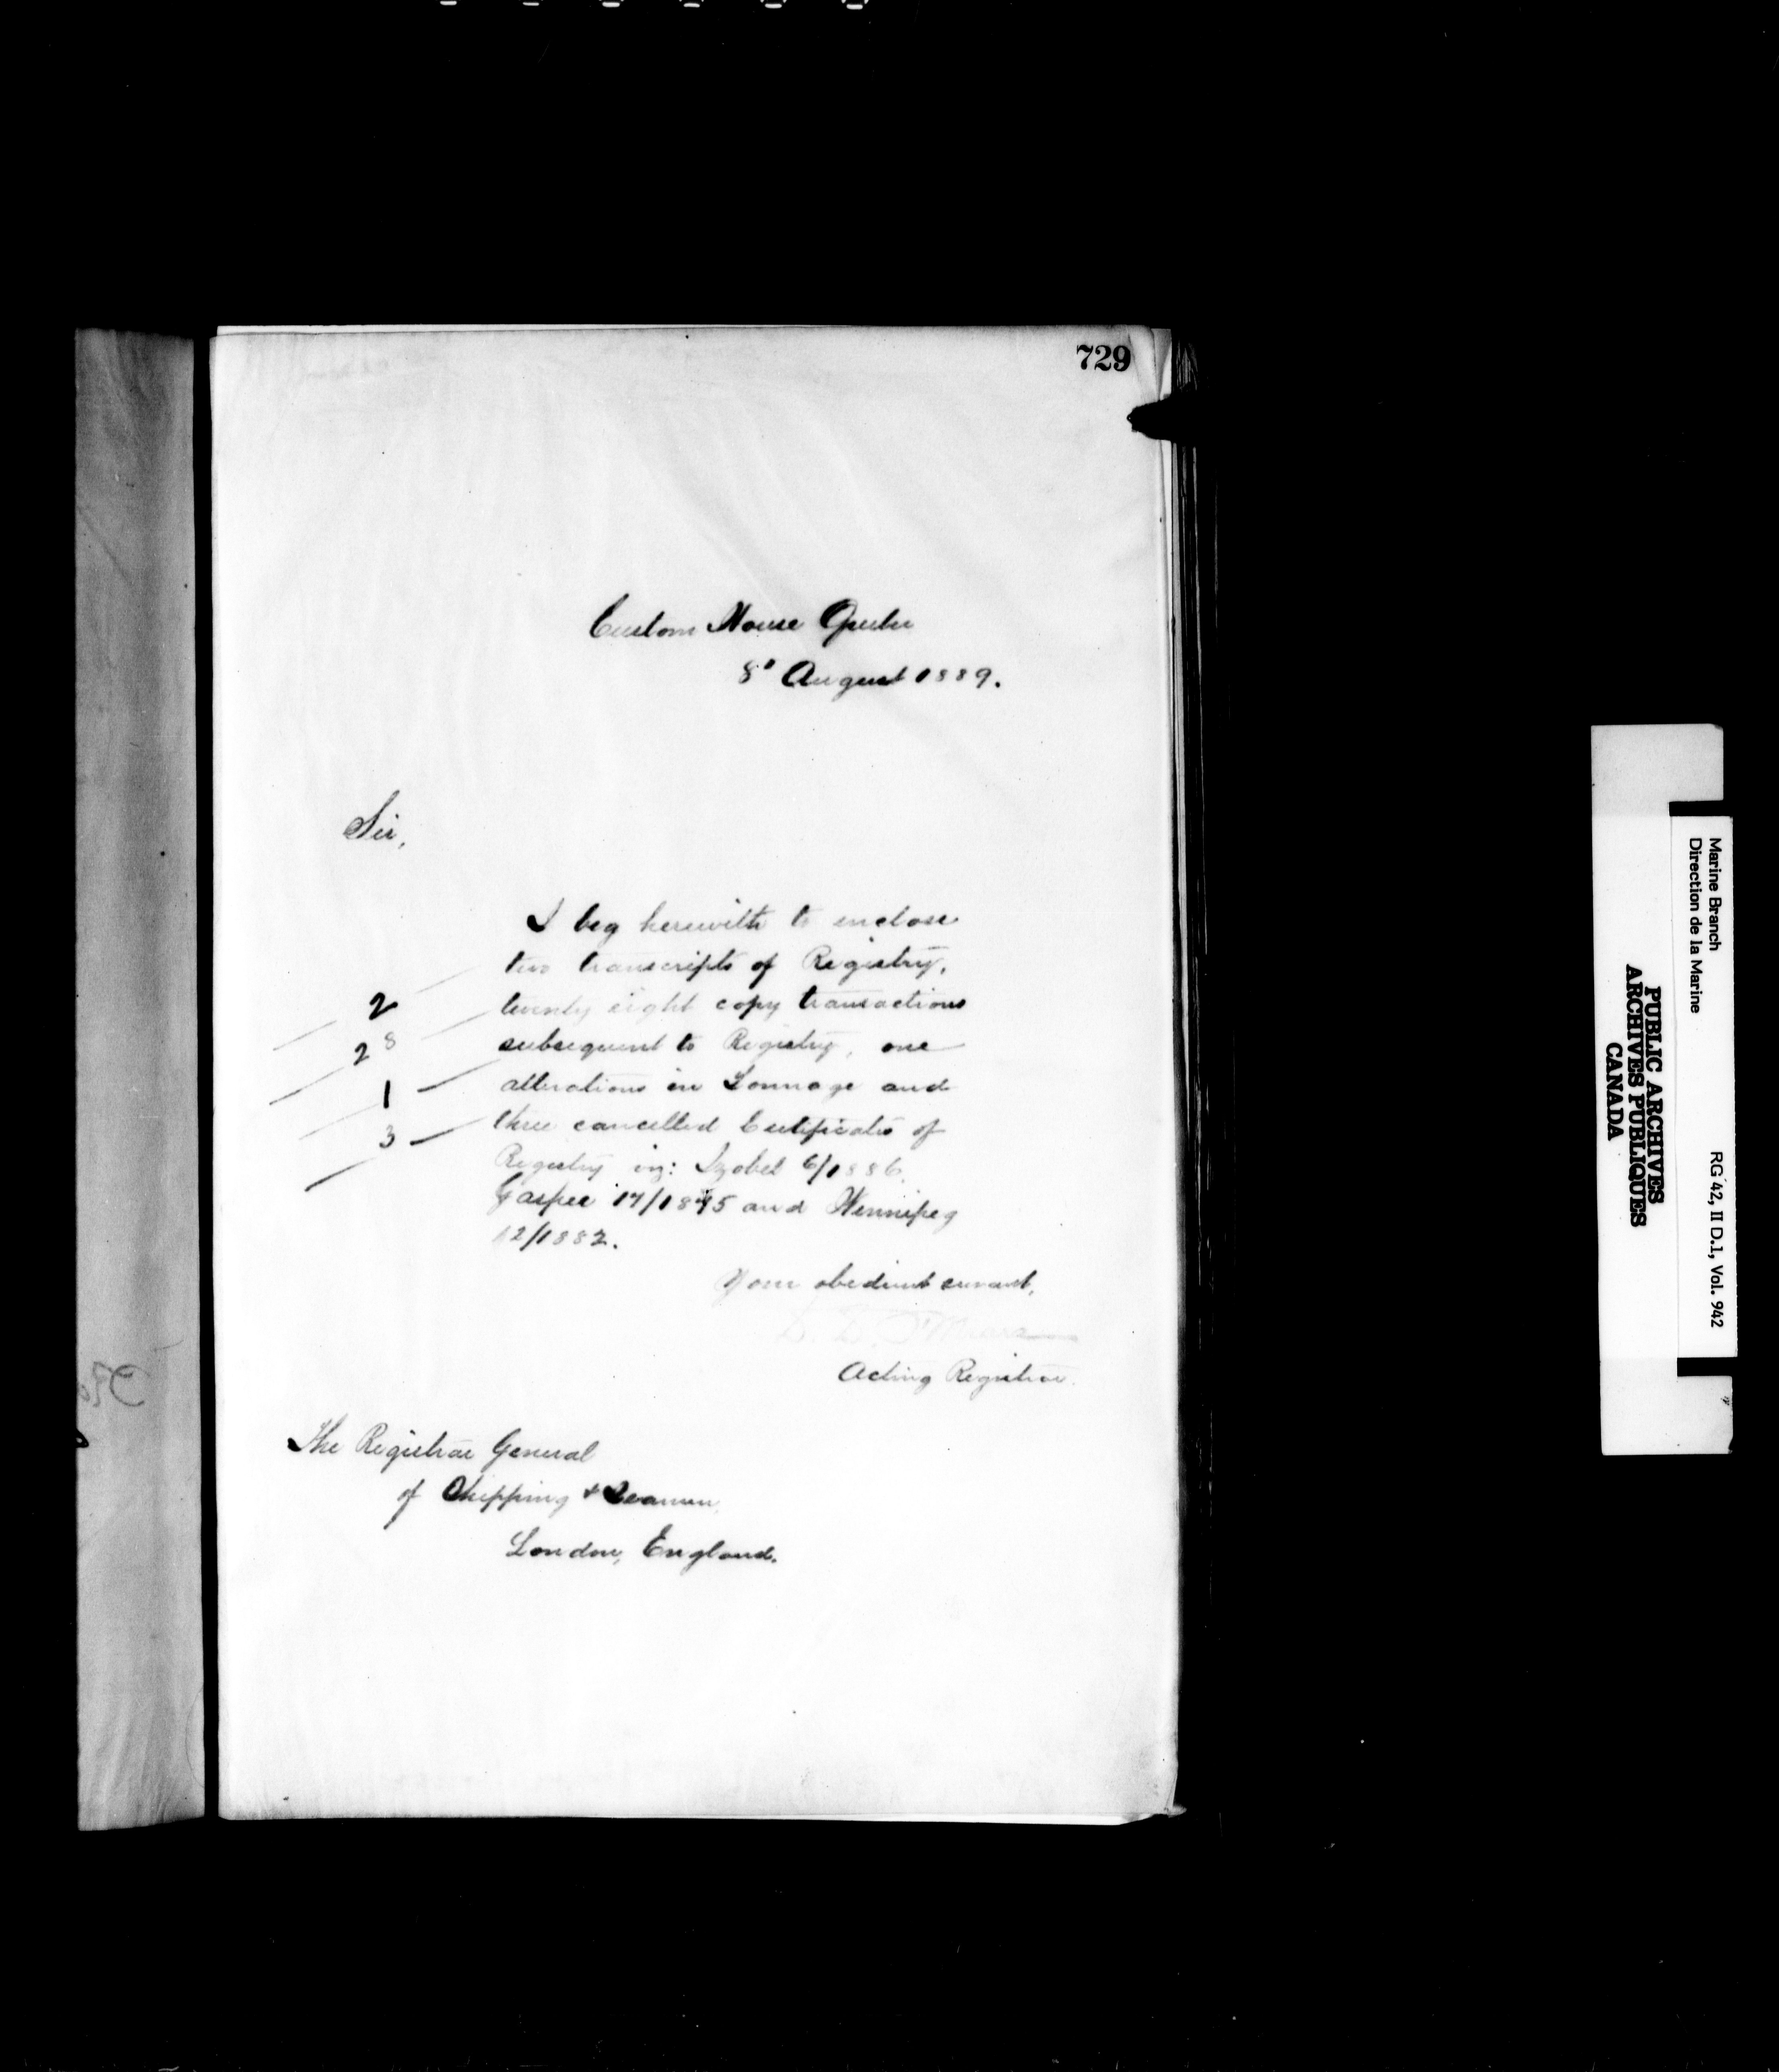 729
Custom House Quebec
8' August 1889.
Sir,
I beg herewith to enclose
two transcripts of Registry,
2 twenty eight copy transactions
28 subsequent to Registry, one
1 alterations in Tonnage and
3 three cancelled Certificates of
Registry viz: Izobel 6/1886,
Gaspee 17/1875 and Winnipeg
12/1882.
Your obedient servant,
Acting Registrar.
The Registrar General
of Shipping & Seamen,
London, England.
Marine Branch
Direction de la Marine
RG 42, II D.1, Vol. 942
PUBLIC ARCHIVES
ARCHIVES PUBLIQUES
CANADA